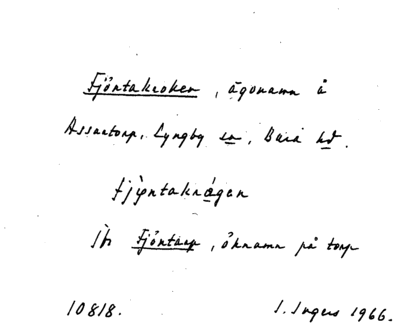 Fjöntakroken, ägonamn å
Assartorp, Lyngby sn, Bara hd.
fjöntakrågen
Jfr Fjöntarp, öknamn på torp
10818. I. Ingers 1966.